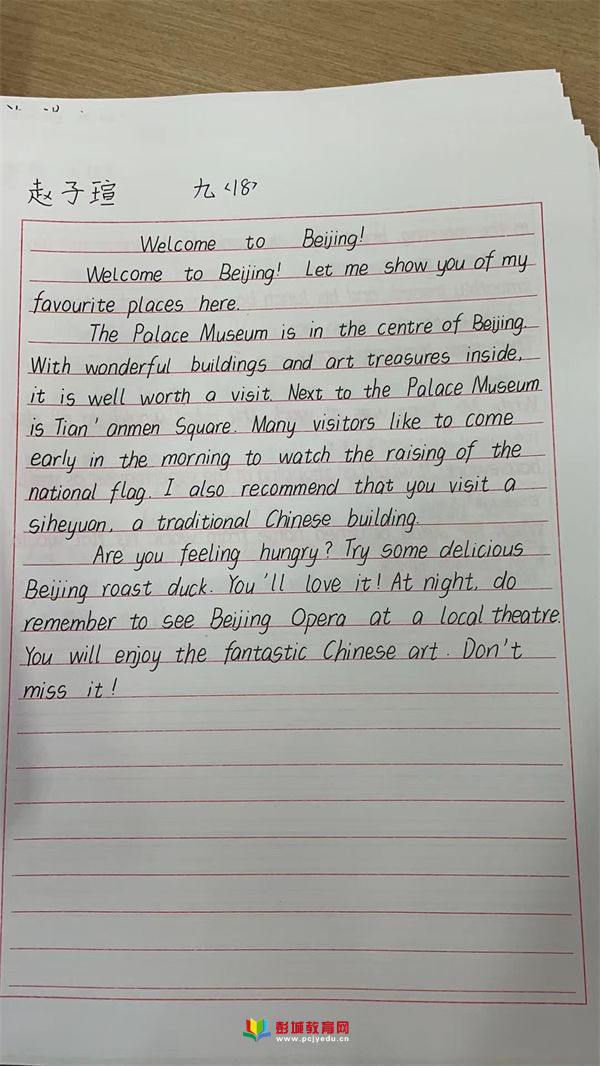 赵子瑄 九<18>
Welcome to Beijing!
Welcome to Beijing! Let me show you of my
favourite places here.
The Palace Museum is in the centre of Beijing.
With wonderful buildings and art treasures inside,
it is well worth a visit. Next to the Palace Museum
is Tian'anmen Square. Many visitors like to come
early in the morning to watch the raising of the
national flag. I also recommend that you visit a
siheyuan, a traditional Chinese building.
Are you feeling hungry? Try some delicious
Beijing roast duck. You'll love it! At night, do
remember to see Beijing Opera at a local theatre.
You will enjoy the fantastic Chinese art. Don't
miss it!
彭城教育网
www.pcjyedu.cn